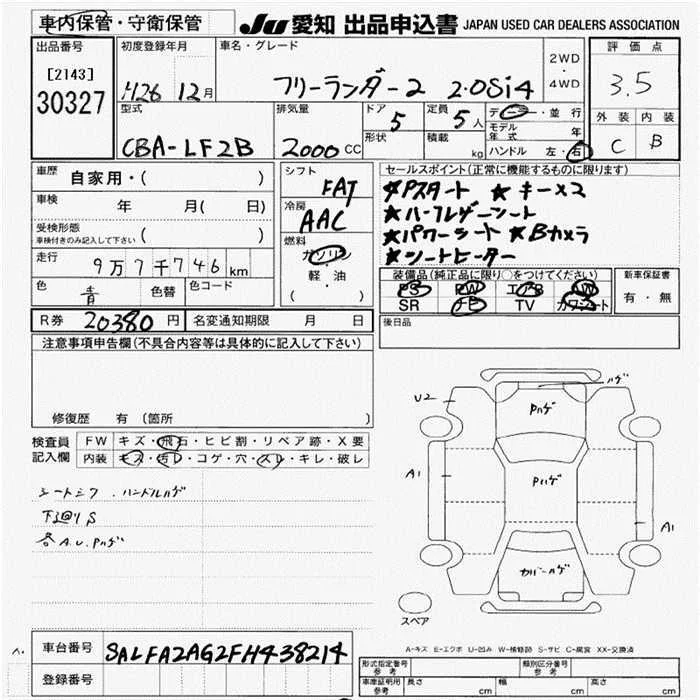 車内保管・守衛保管
JU 愛知 出品申込書 JAPAN USED CAR DEALERS ASSOCIATION
出品番号 初度登録年月 車名・グレード 評価点
[2143]
30327
H26 12月 フリーランダー2 2.0Si4 2WD・4WD 3.5
型式 排気量 ドア 定員 ディーラー・並行 外装 内装
CBA-LF2B 2000cc 5 5人 モデル年式 年 C B
形状 積載 kg ハンドル 左・右
車歴 自家用・( )
シフト FAT
セールスポイント(正常に機能するものに限ります)
★Pスタート ★キー×2
★ハーフレザーシート
★パワーシート ★Bカメラ
★シートヒーター
車検 年 月( 日)
冷房 AAC
受検形態
車検付きのみ記入して下さい ( )
燃料 ガソリン
軽・油
( )
走行 9万7千746km
色 青 色替 色コード
装備品(純正品に限り○をつけてください) 新車保証書
PS PW エアB AW 有・無
SR ナビ TV カワシート
R券 20380円 名変通知期限 月 日
後日品
注意事項申告欄(不具合内容等は具体的に記入して下さい)
修復歴 有 (箇所 )
検査員記入欄 FW キズ・飛石・ヒビ割・リペア跡・X要
内装 キズ・汚レ・コゲ・穴・スレ・キレ・破レ
シートシワ・ハンドルハゲ
下廻りS
各A.U.Pハゲ
U2
ハゲ
Pハゲ
A1
Pハゲ
A1
カバーハゲ
スペア
A-キズ E-エクボ U-凹み W-補修跡 S-サビ C-腐食 XX-交換済
車台番号 SALFA2AG2FH438214
登録番号
形式指定番号 参考 類別区分番号 参考
車庫証明用 参考 長さ cm 幅 cm 高さ cm